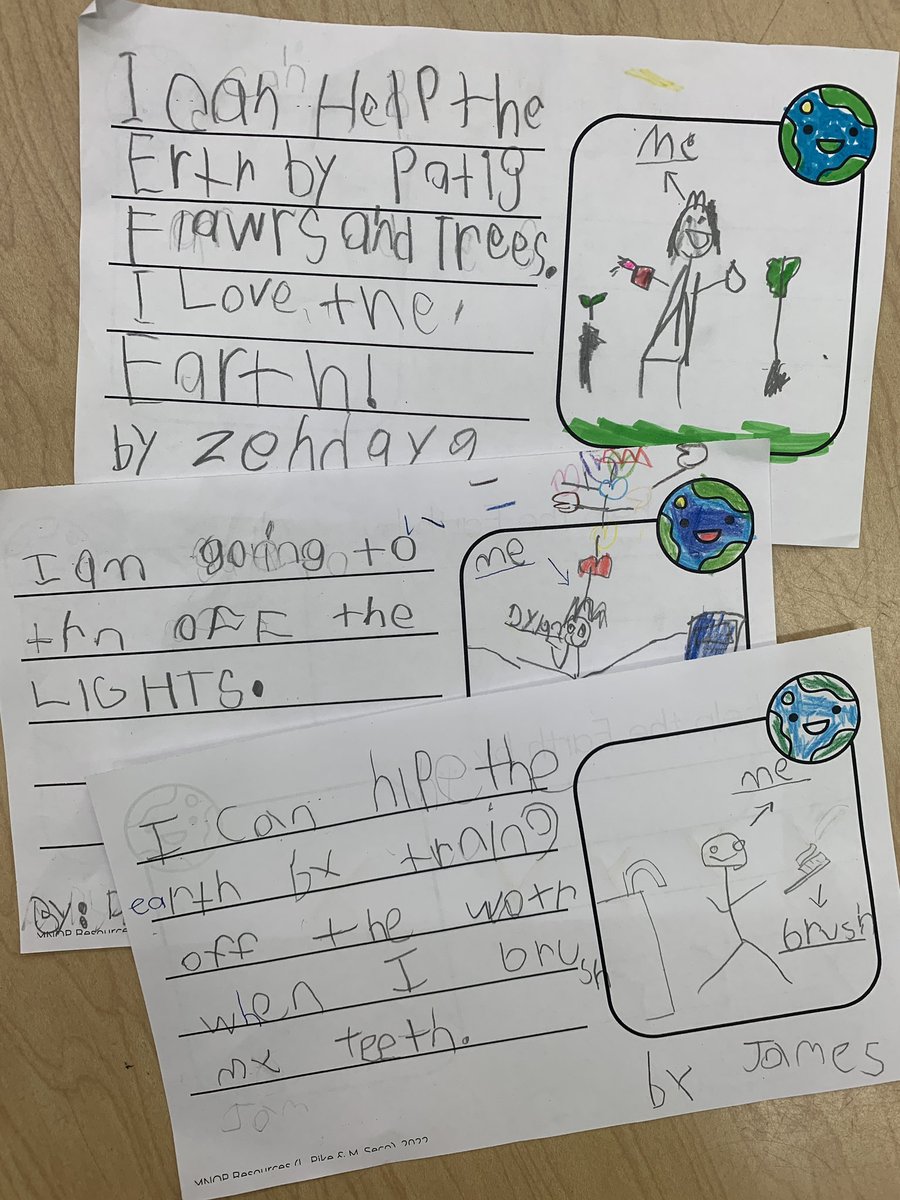 I can Help the
Ertn by Patig
Flawrs and Trees.
I Love the
Earth!
by zendaya
me
I am going to
thn OFF the
LIGHTS.
By:
me
Dylan
I can hlpe the
earth by traing
off the wotr
when I brush
my teeth.
Jam
me
brush
by James
MKIND Resources (L. Pike & M. Serg) 2022